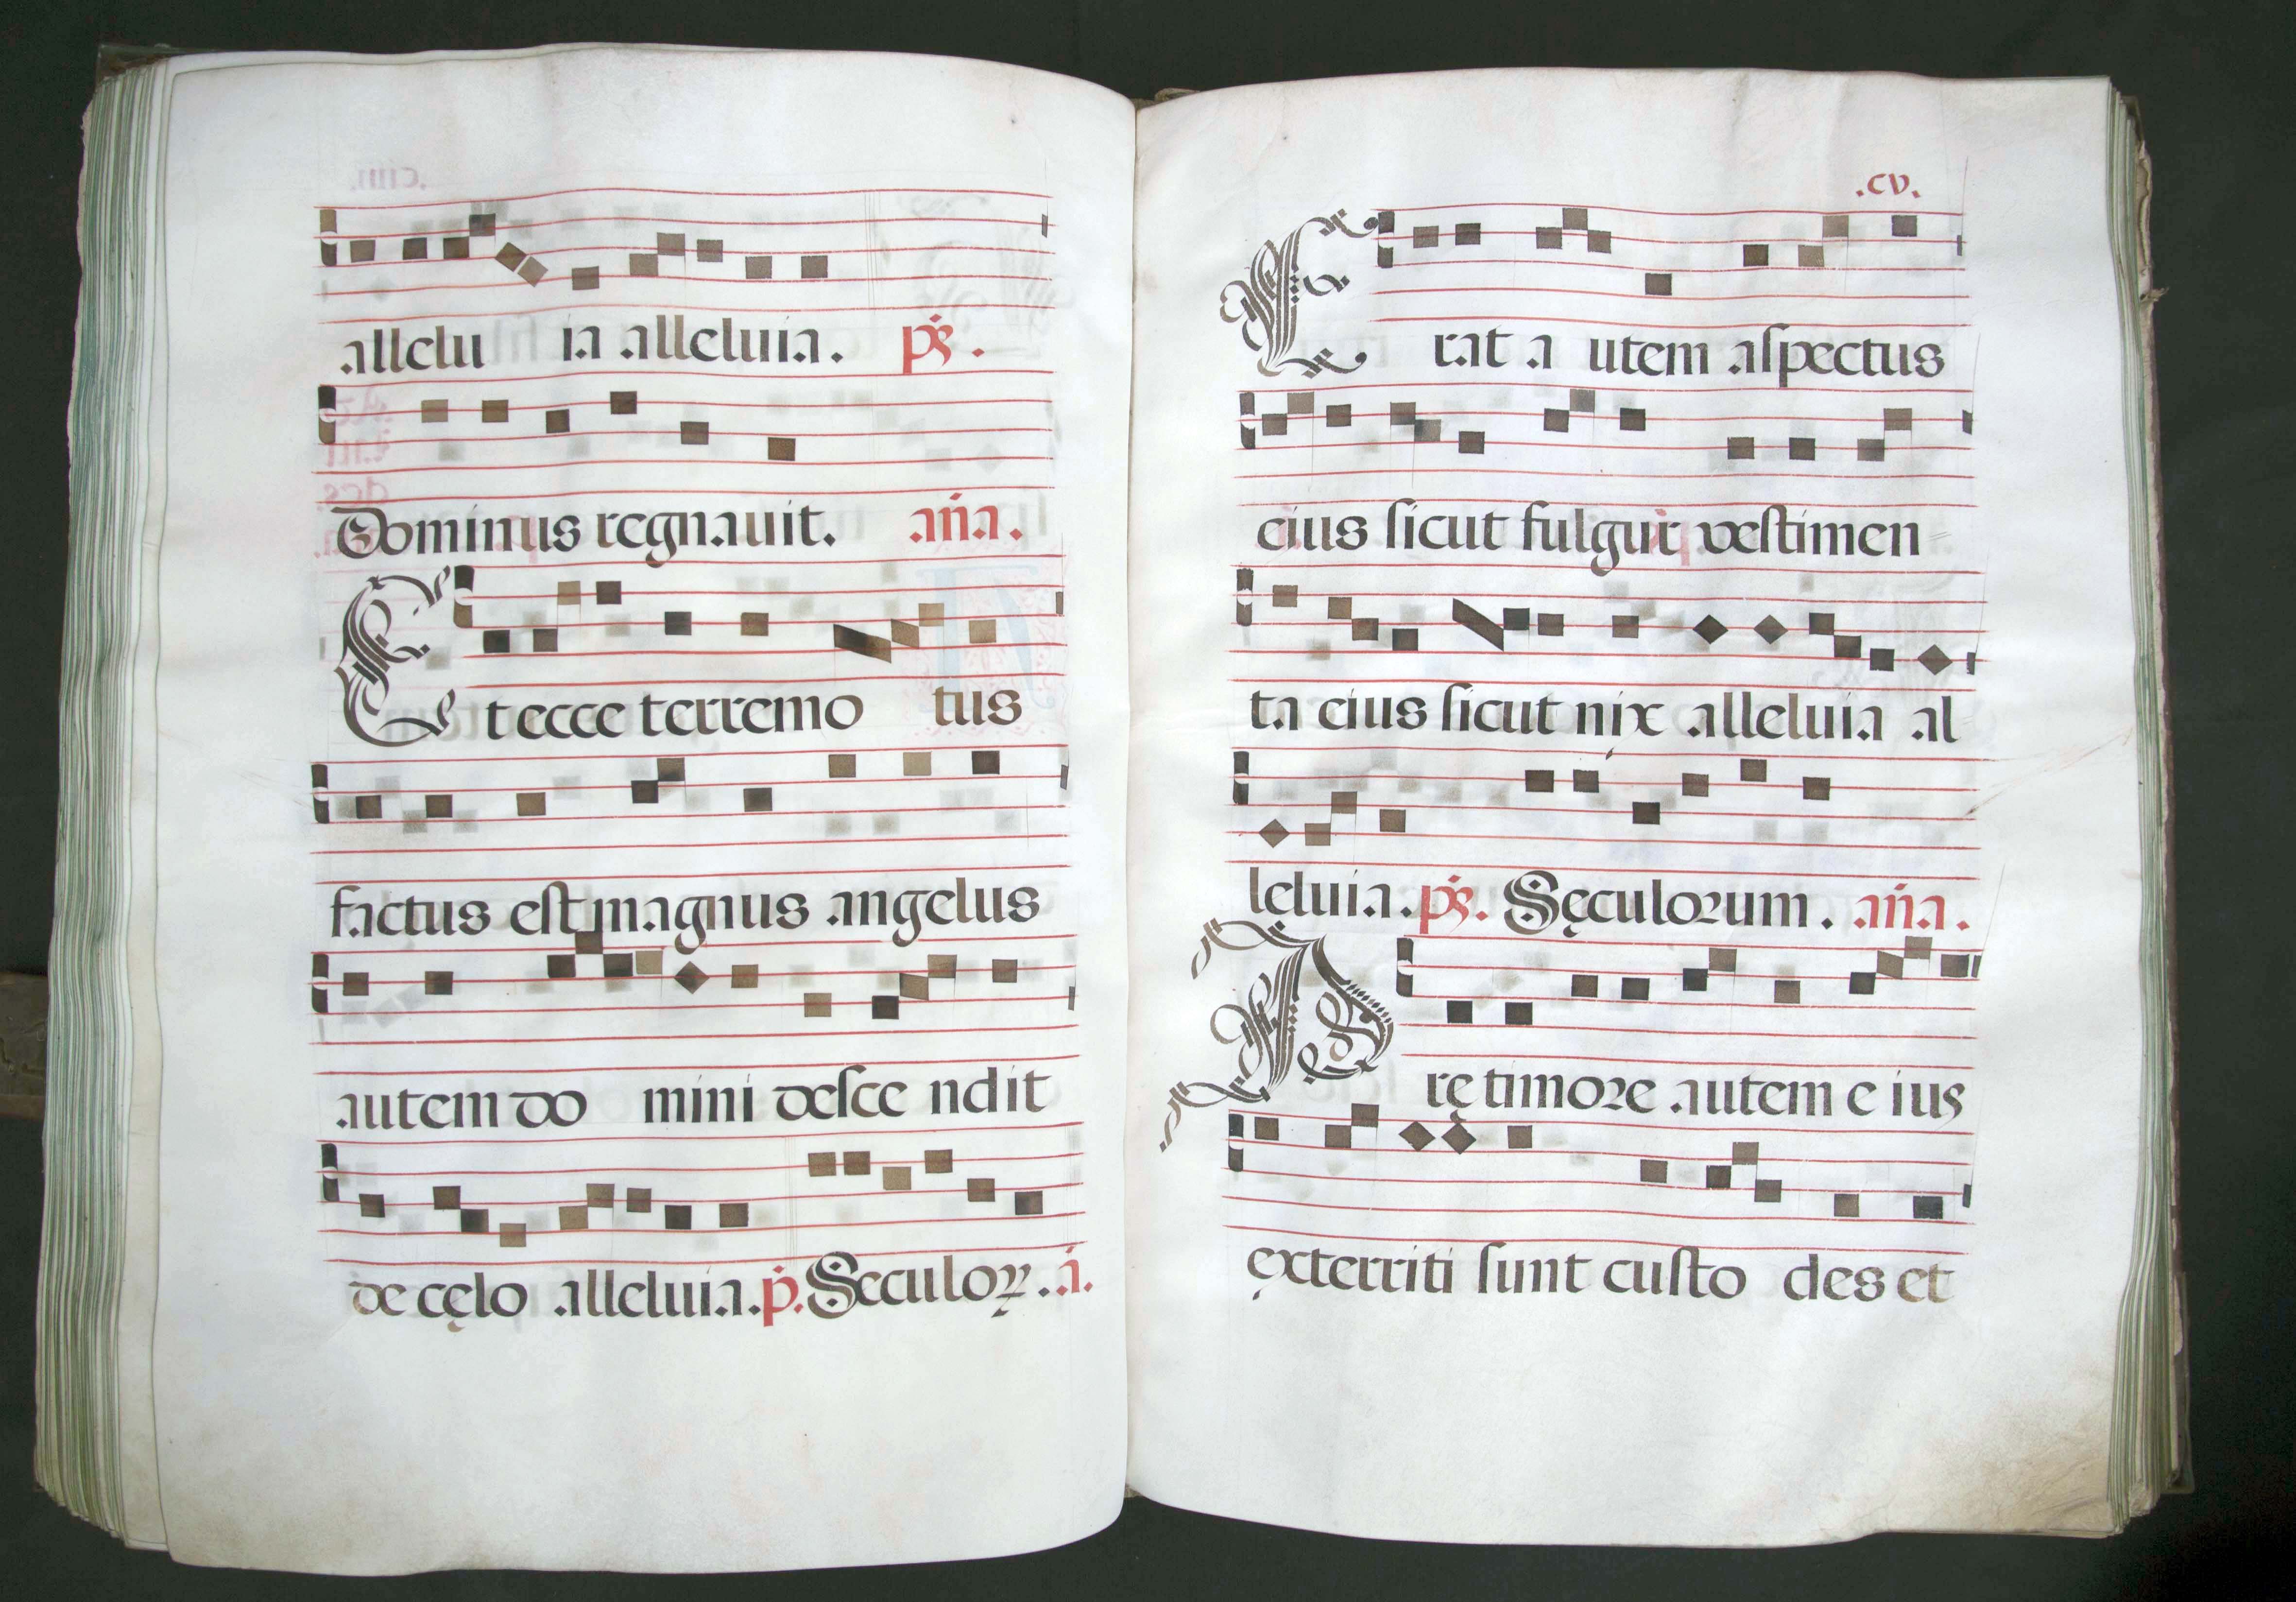 allelu ia alleluia. ps.
Dominus regnauit. aña.
Et ecce terremo tus
factus est magnus angelus
autem do mini desce ndit
de cęlo alleluia. p. Seculoꝝ. a.
.cv.
Erat a utem aſpectus
eius ſicut fulgur veſtimen
ta eius ſicut nix alleluia al
leluia. ps. Sęculorum. aña.
Prę timore autem e ius
exterriti ſunt cuſto des et